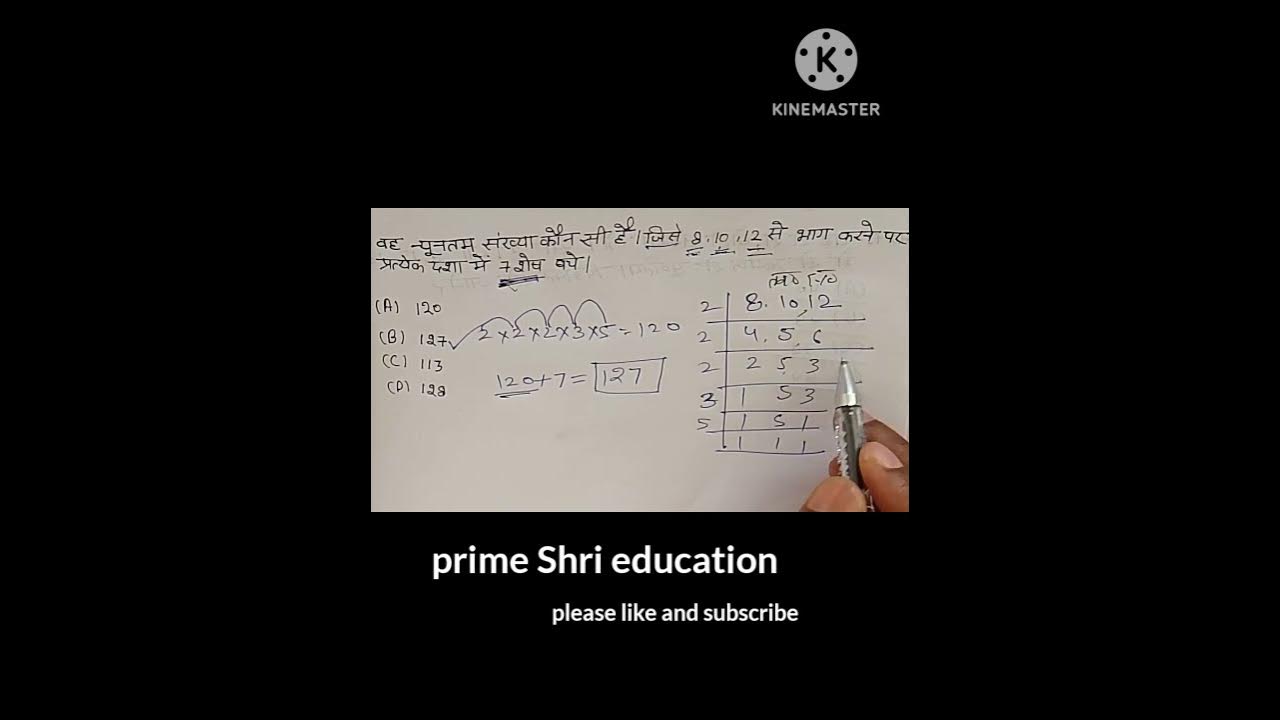 KINEMASTER
वह न्यूनतम संख्या कौन सी है। जिसे 8, 10, 12 से भाग करने पर
प्रत्येक दशा में 7 शेष बचे।
(A) 120
(B) 127
(C) 113
(D) 128
2×2×2×3×5 = 120
120+7 = 127
2 8, 10, 12
2 4, 5, 6
2 2 5, 3
3 1 5 3
5 1 5 1
1 1 1
prime Shri education
please like and subscribe